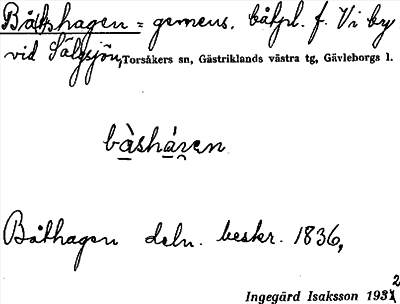 Båthagen = gemens. båtpl. f. Vi by
vid Sälgsjön, Torsåkers sn, Gästriklands västra tg, Gävleborgs l.
bàshágen
Båthagen deln. beskr. 1836,
Ingegärd Isaksson 1932